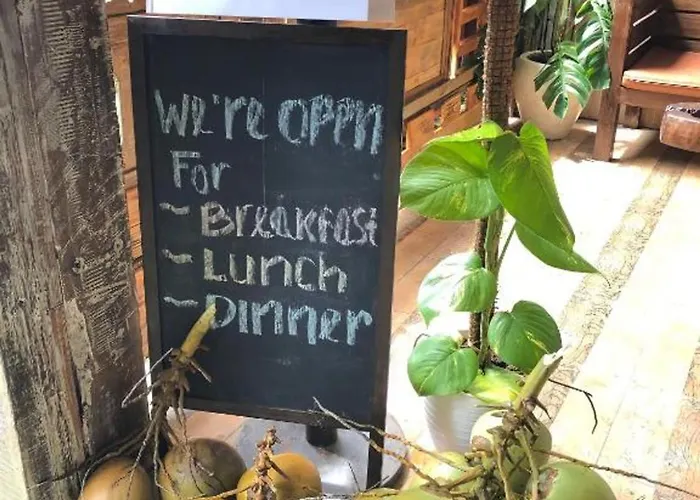 We're open
For
~ Breakfast
~ Lunch
~ Dinner